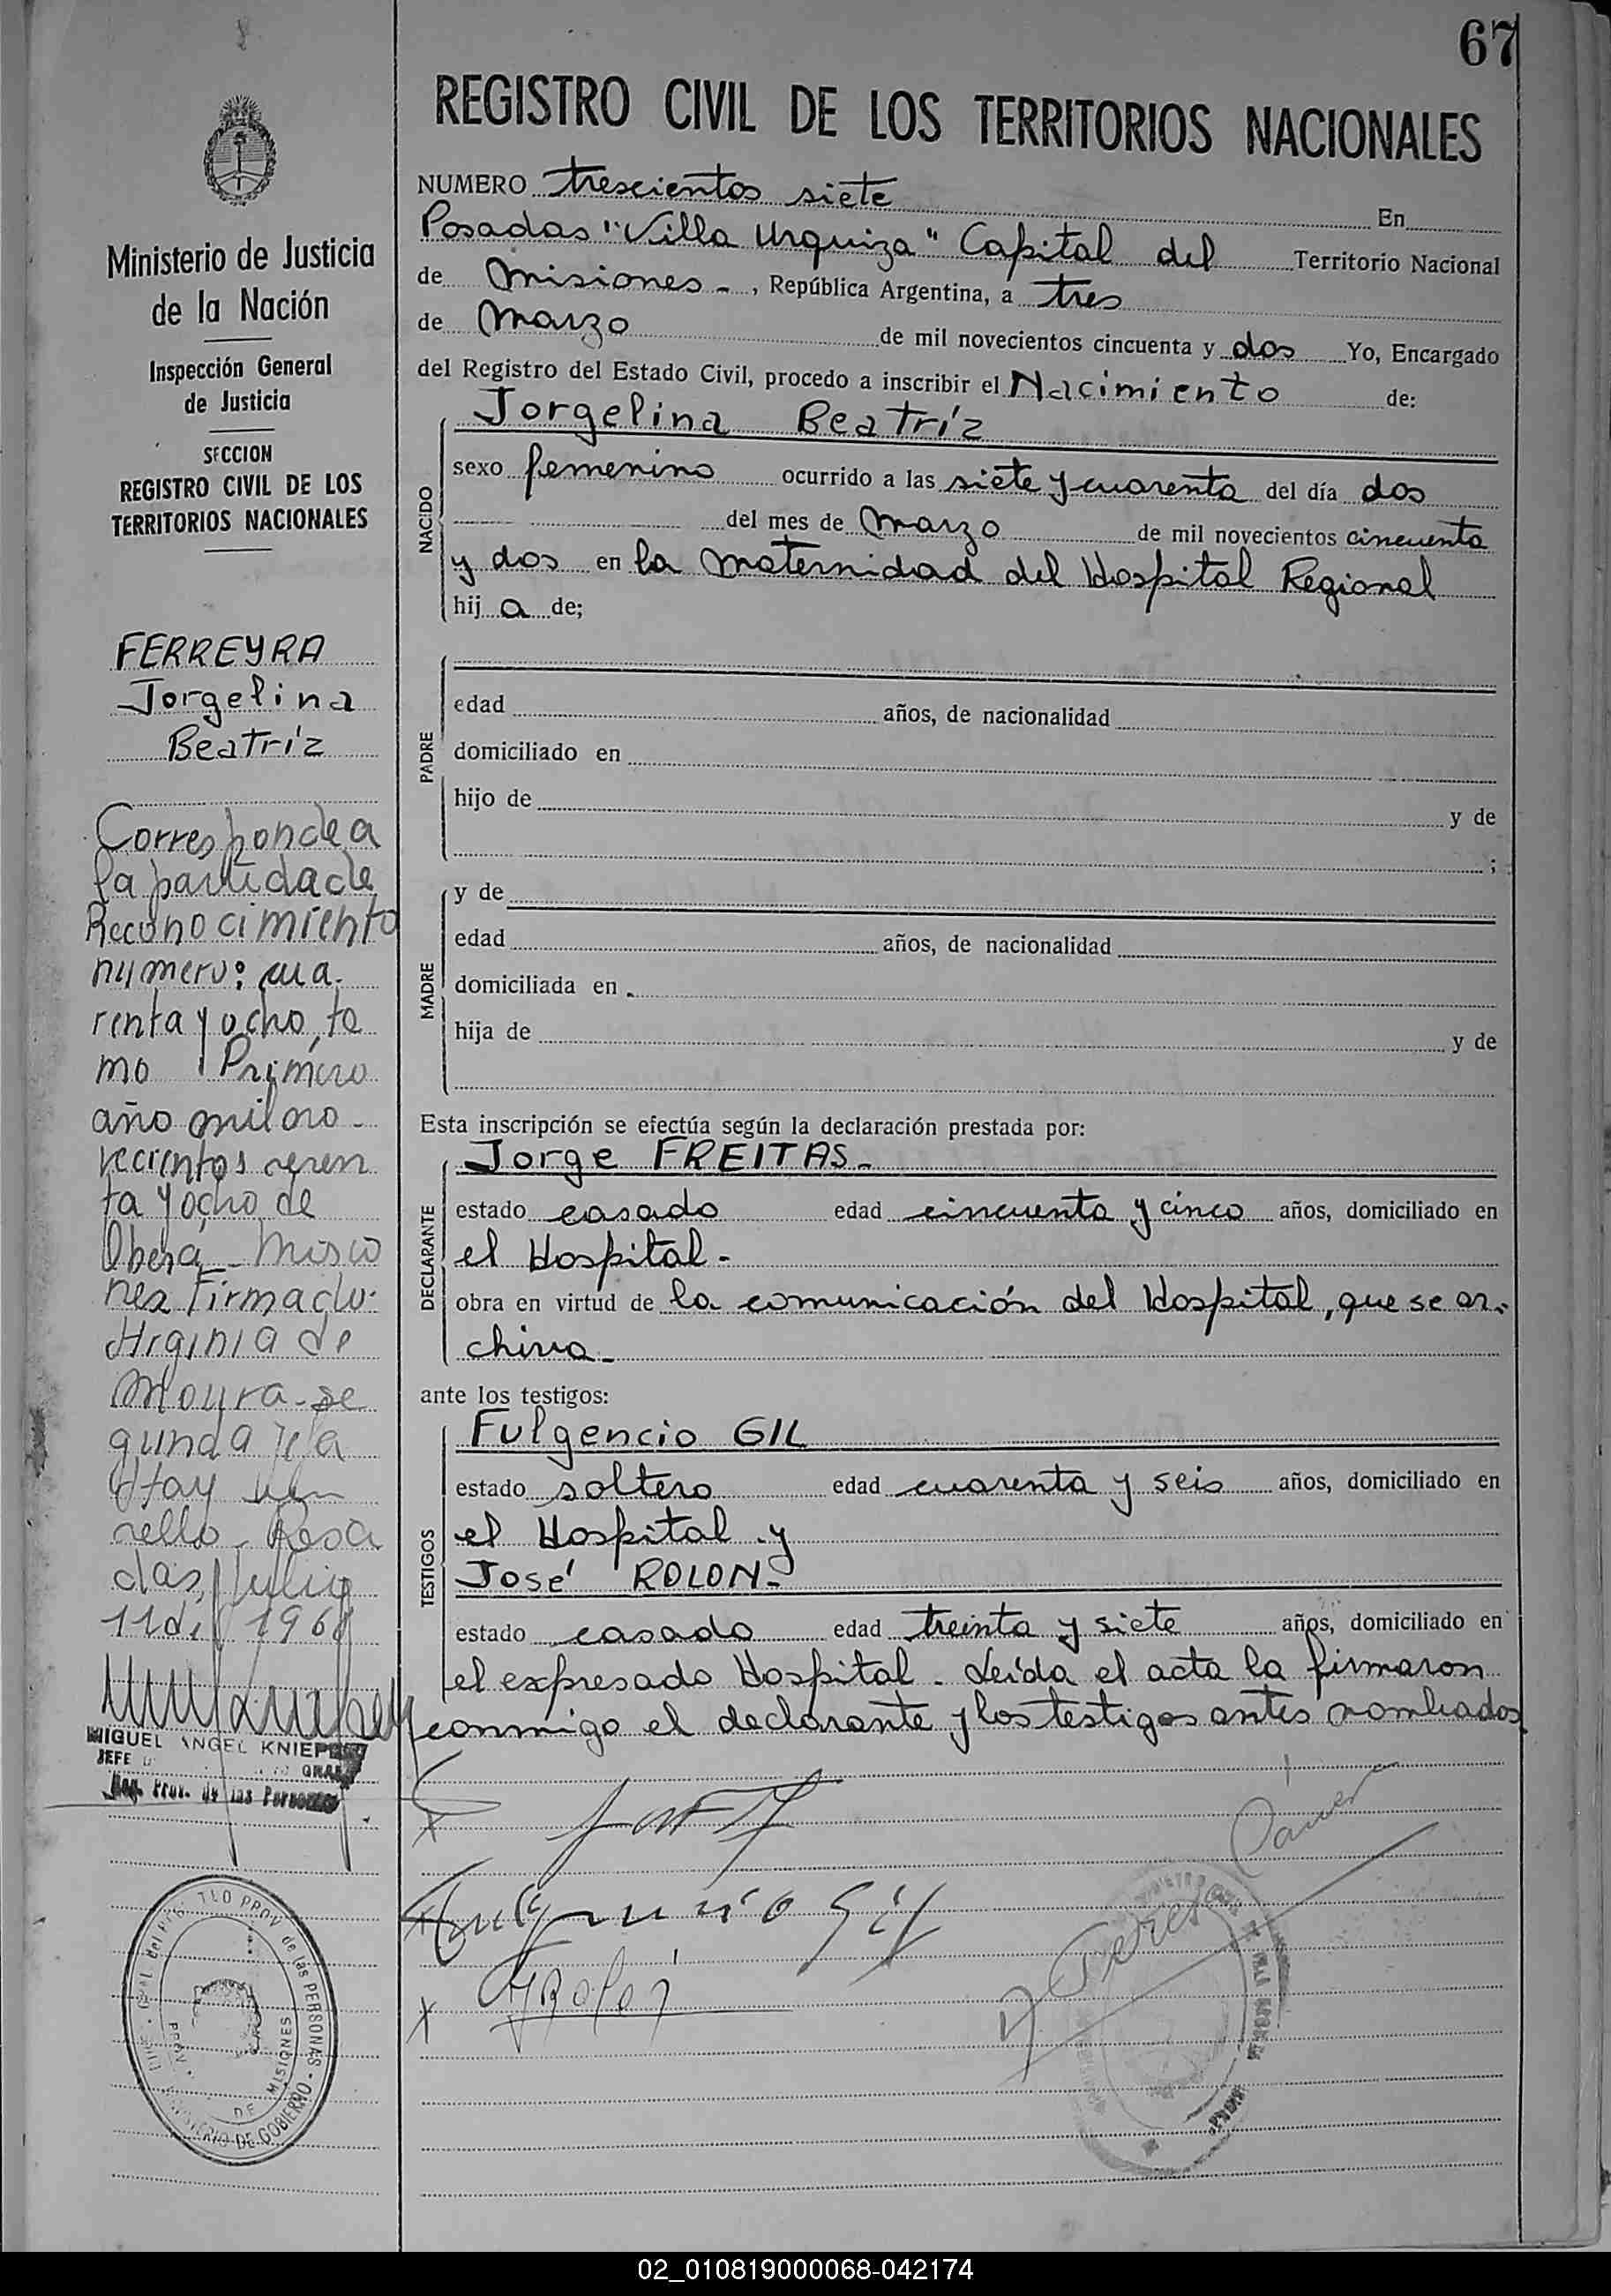 67
REGISTRO CIVIL DE LOS TERRITORIOS NACIONALES
Ministerio de Justicia
de la Nación
Inspección General
de Justicia
SECCION
REGISTRO CIVIL DE LOS
TERRITORIOS NACIONALES
FERREYRA
Jorgelina
Beatríz
Corresponde a
la partida de
Reconocimiento
numero: cua-
renta y ocho, to
mo Primero
año mil no-
vecientos sesen
ta y ocho de
Oberá - Misio
nes Firmado:
Moura - se
gunda
Hay un
sello - Posa
das, Julio
11 de 1968
MIGUEL ANGEL KNIEP
JEFE
Reg. Prov. de las Personas
PROV. de las PERSONAS
PROV.
DE
MISIONES
MINISTERIO DE GOBIERNO
NUMERO trescientos siete En
Posadas "Villa Urquiza" Capital del Territorio Nacional
de Misiones - , República Argentina, a tres
de Marzo de mil novecientos cincuenta y dos Yo, Encargado
del Registro del Estado Civil, procedo a inscribir el Nacimiento de:
NACIDO
Jorgelina Beatríz
sexo femenino ocurrido a las siete y cuarenta del día dos
del mes de Marzo de mil novecientos cincuenta
y dos en la Maternidad del Hospital Regional
hij a de;
PADRE
edad años, de nacionalidad
domiciliado en
hijo de y de
;
MADRE
y de
edad años, de nacionalidad
domiciliada en
hija de y de
Esta inscripción se efectúa según la declaración prestada por:
DECLARANTE
Jorge FREITAS-
estado casado edad cincuenta y cinco años, domiciliado en
el Hospital-
obra en virtud de la comunicación del Hospital, que se ar-
chiva-
ante los testigos:
TESTIGOS
Fulgencio GIL
estado soltero edad cuarenta y seis años, domiciliado en
el Hospital y
José ROLON-
estado casado edad treinta y siete años, domiciliado en
el expresado Hospital - Leída el acta la firmaron
conmigo el declarante y los testigos antes nombrados
Fulgencio Gil
02_010819000068-042174